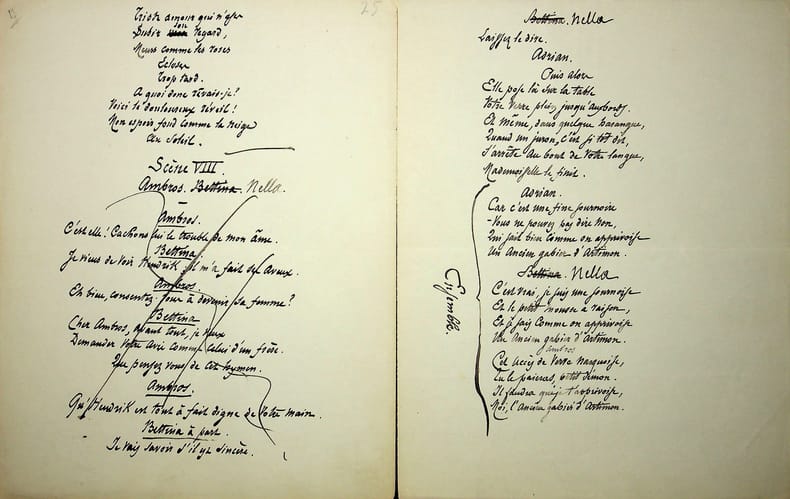 Triste amour qui n'ose
Subir son regard,
Meurs comme les roses
Ecloses
Trop tard.
A quoi donc rêvais-je?
Voici le douloureux réveil!
Mon espoir fond comme la neige
Au Soleil.
Scène VIII.
Ambros. Bettina. Nella.
Ambros.
C'est elle! Cachons lui le trouble de mon âme.
Bettina
Je viens de voir Hendrik il m'a fait ses aveux.
Ambros.
Eh bien, consentez-vous à devenir sa femme?
Bettina
Cher Ambros, avant tout, je veux
Demander votre avis comme celui d'un frère.
Que pensez vous de cet hymen.
Ambros.
Qu'Hendrik est tout à fait digne de votre main.
Bettina à part.
Je vais savoir s'il est sincère.
25
Bettina. Nella
Laissez le dire.
Adrian.
Puis alors
Elle pose là sur la table
Votre verre plein jusqu'aux bords.
Et même, dans quelque harangue,
Quand un juron, c'est si tôt dit,
S'arrête au bout de votre langue,
Mademoiselle le finit.
Adrian.
Car c'est une fine sournoise
-Vous ne pouvez pas dire non,
Qui sait bien comme on apprivoise
Un Ancien gabier d'Artimon.
Bettina. Nella
C'est vrai, je suis une sournoise
Et le petit mousse a raison,
Et je sais comme on apprivoise
Un Ancien gabier d'Artimon.
Ambros
Cet accès de verve narquoise,
Tu le paieras, petit démon.
Il faudra qu'je t'apprivoise,
Moi, l'Ancien gabier d'Artimon.
Ensemble.